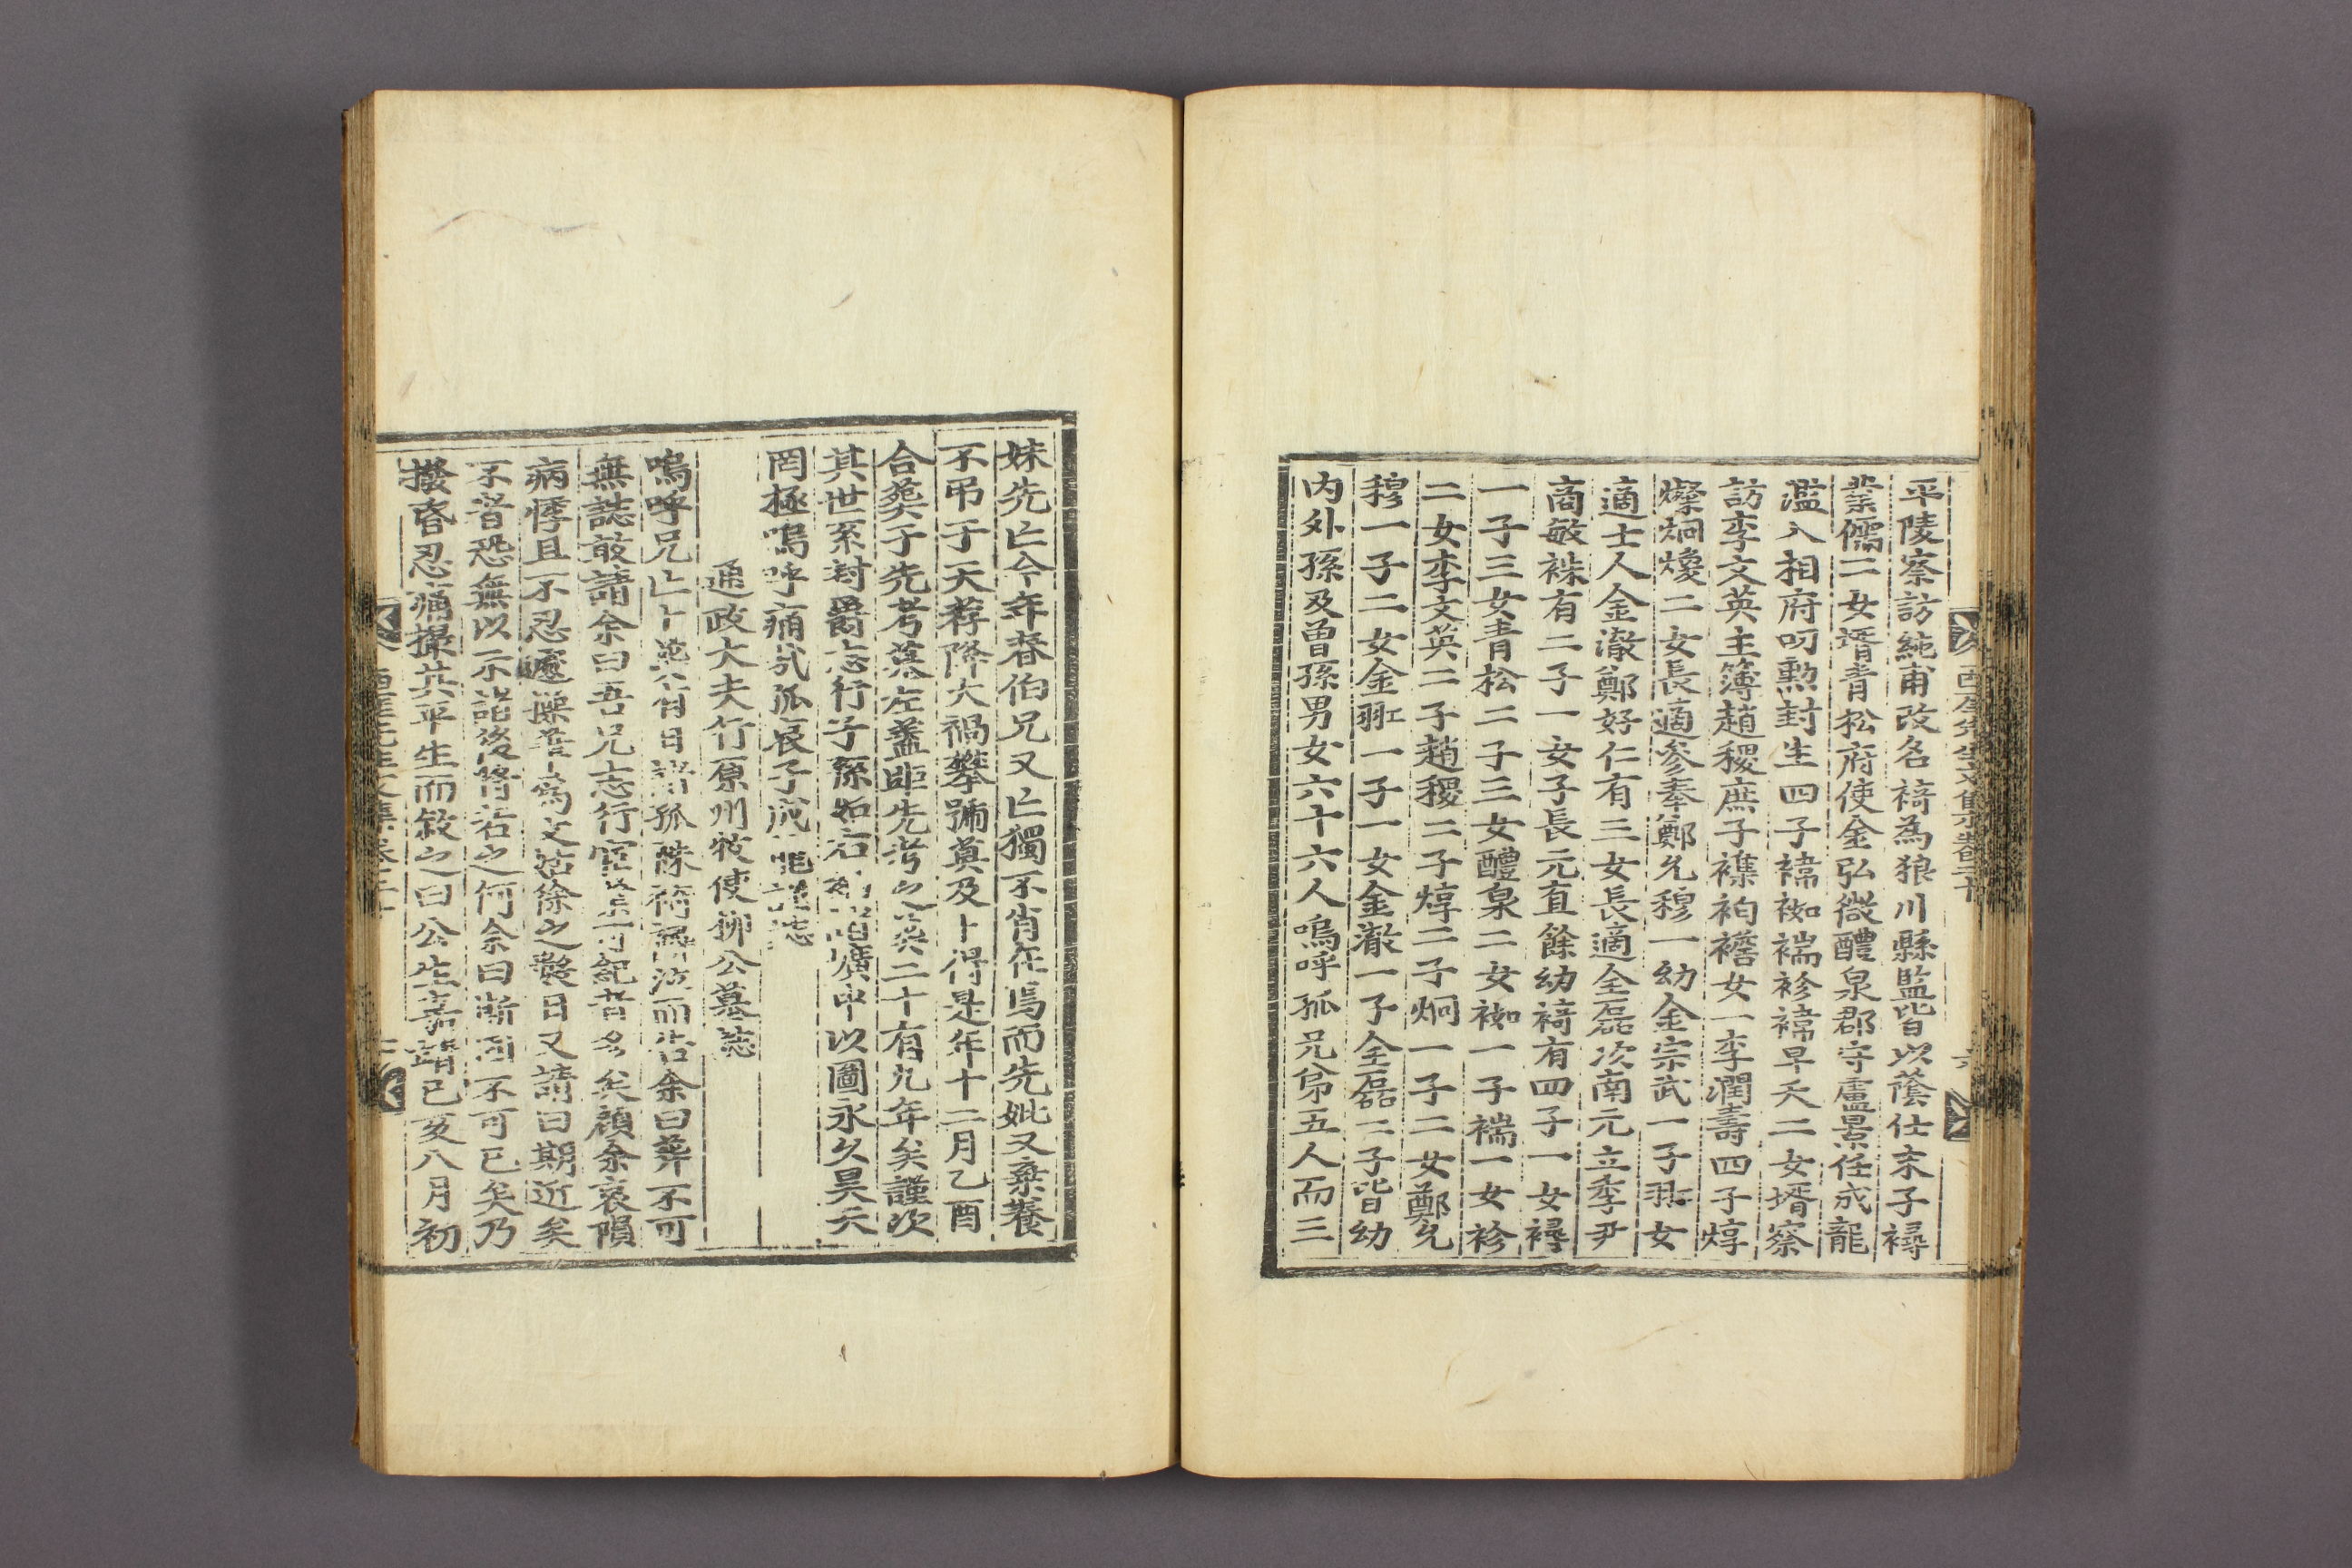 西厓先生文集卷二十
六
平陵察訪純甫改名䄎為狼川縣監皆以蔭仕末子襑
業儒二女壻青松府使金弘微醴泉郡守盧景任成龍
濫入相府叨勲封生四子褘袽褍袗褘早夭二女壻察
訪李文英主簿趙稷庶子襍袙襜女一李潤壽四子焞
燦炯煥二女長適參奉鄭允穆一幼金宗武一子翀女
適士人金澈鄭好仁有三女長適全磊次南元立季尹
商敏袾有二子一女子長元直餘幼䄎有四子一女襑
一子三女青松二子三女醴泉二女袽一子褍一女袗
二女李文英二子趙稷二子焞二子炯一子二女鄭允
穆一子二女金翀一子一女金澈一子全磊二子皆幼
内外孫及曾孫男女六十六人嗚呼孤兄弟五人而三
妹先亡今年春伯兄又亡獨不肖在焉而先妣又棄養
不弔于天荐降大禍攀號莫及卜得是年十二月乙酉
合葬于先考墓左蓋距先考之葬二十有九年矣謹次
其世系封爵志行子孫如右納諸壙中以圖永久昊天
罔極嗚呼痛哉孤哀子成龍謹誌
通政大夫行原州牧使柳公墓誌
嗚呼兄亡卜葬有日諸孤袾䄎等泣而告余曰葬不可
無誌敢請余曰吾兄志行宜銘可紀者多矣顧余哀隕
病悸且不忍遽操筆為文姑徐之襲日又請曰期近矣
不晉恐無以示詔後將若之何余曰斯固不可已矣乃
撥昏忍痛撮其平生而敘之曰公生嘉靖已亥八月初